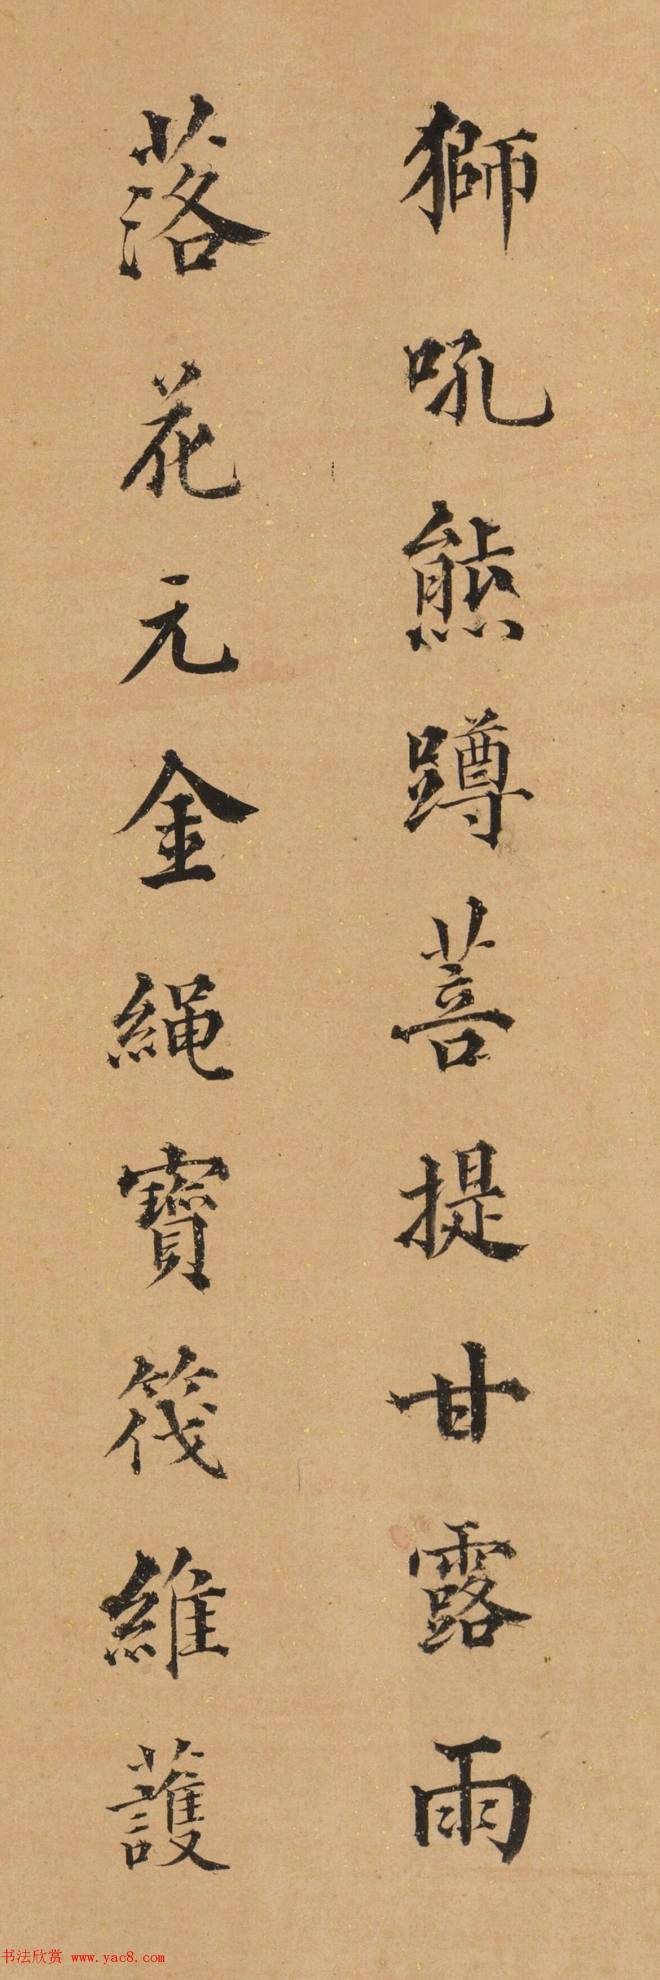 獅吼熊蹲菩提甘露雨
落花元金繩寶筏維護
书法欣赏 www.yac8.com